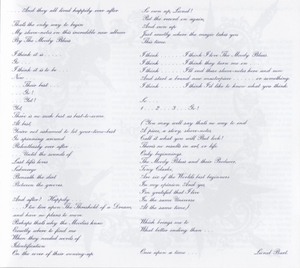 And they all lived happily ever after
That's the only way to begin
My sleeve-notes on this incredible new album
By The Moody Blues
I think it is . . .
Go
I think it is to be
Now
Their best
. . . Go!
. . . Yet!
Yet,
There is no such best as best-to-come
At best,
You're not
Until the sounds of
Last life lives
Beneath the
Between the grooves
And after? Happily
I live too upon This Threshold of a Dream,
and have no plans to move
Perhaps that's why the Moodies know
Exactly where to find me
When they needed words of
Identification
On the eve of their evening-up.
So ever up, Lionel!
Put the record on again,
And once up,
Just exactly where the magic takes you
This time.
I think . . . . I think I love The Moody Blues
I think . . . . I think they turn me on . . .
I think . . . . I'll end these sleeve-notes here and now
And start a brand new masterpiece . . . or something
I think . . . . I think I'd like to know what you think
So
1 . . 2 . . 3 . . Go!
(You may well say that's no way to end
A piece, a story, sleeve-notes,
Call it what you will But look!
There's no ends in art, or life
Only beginnings
The Moody Blues and their Producer,
Tony Clarke,
Are six of the World's best beginners
In my opinion And yes,
I'm grateful that I live
In the same Universe
At the same time)
Which brings me to
What better ending than . . .
Once upon a time . . . Lionel Bart